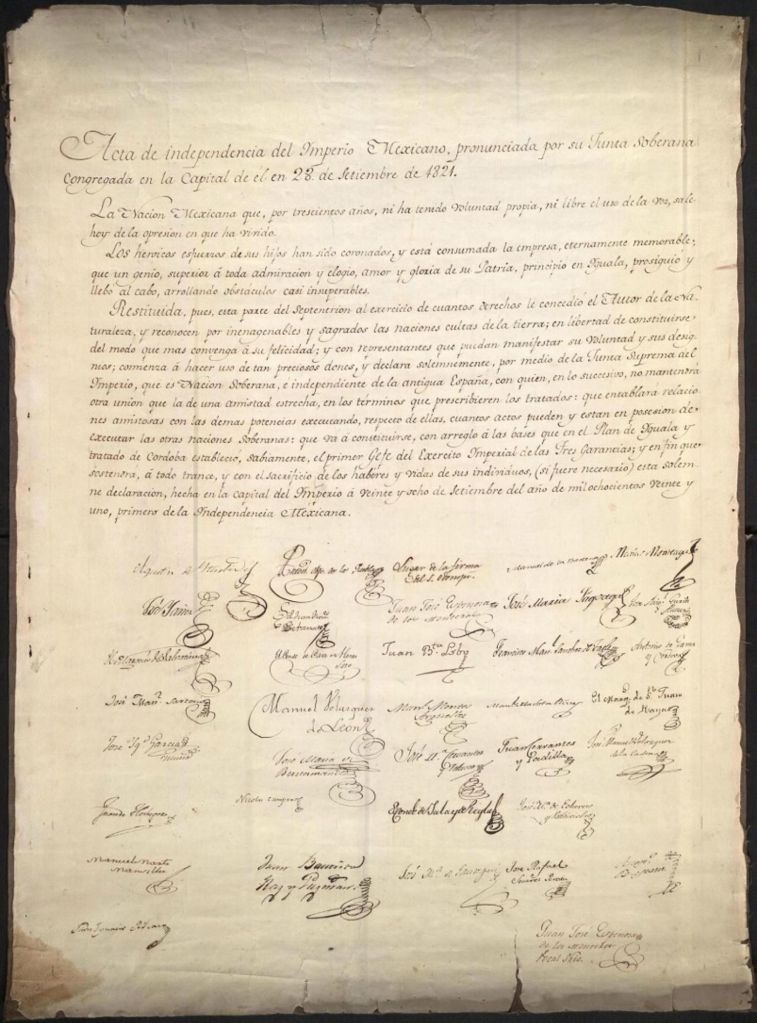 Acta de independencia del Imperio Mexicano, pronunciada por su Junta Soberana
congregada en la Capital de el en 28 de Setiembre de 1821.
La Nacion Mexicana que, por trescientos años, ni ha tenido voluntad propia, ni libre el uso de la voz, sale
hoy de la opresion en que ha vivido.
Los heroicos esfuerzos de sus hijos han sido coronados, y está consumada la empresa, eternamente memorable,
que un genio, superior á toda admiracion y elogio, amor y gloria de su Patria, principió en Iguala, prosiguió y
llebó al cabo, arrollando obstáculos casi insuperables.
Restituida, pues, esta parte del Septentrion al exercicio de cuantos derechos le concedió el Autor de la Na-
turaleza, y reconocen por inenagenables y sagrados las naciones cultas de la tierra; en libertad de constituirse
del modo que mas convenga á su felicidad; y con representantes que puedan manifestar su voluntad y sus desig-
nios; comienza á hacer uso de tan preciosos dones, y declara solemnemente, por medio de la Junta Suprema del
Imperio, que es Nacion Soberana, e independiente de la antigua España, con quien, en lo succesivo, no mantendrá
otra union que la de una amistad estrecha, en los términos que prescribieren los tratados: que entablará relacio-
nes amistosas con las demas potencias executando, respecto de ellas, cuantos actos pueden y estan en posesion de
executar las otras naciones Soberanas: que va á constituirse, con arreglo á las bases que en el Plan de Iguala y
tratado de Cordoba estableció, sabiamente, el primer Gefe del Exercito Imperial de las Tres Garancias; y en fin que
sostendrá, á todo trance, y con el sacrificio de los haberes y vidas de sus individuos, (si fuere necesario) esta solem-
ne declaracion, hecha en la capital del Imperio á veinte y ocho de Setiembre del año de mil ochocientos veinte y
uno, primero de la Independencia Mexicana.
Agustin de
de la Puebla
Lugar de la firma
del S. Odonojú
Manuel de la
Matias Monteagudo
José Yañez
Juan José Espinosa
de los Monteros
José Maria
Juan
Francisco Man. Sanchez de Tagle
Antonio de Gama
y Cordova
José Man.
Manuel Velazquez
de Leon
Man. Montes
Arguelles
El Marq. de S. Juan
de Rayas
José Ig. Garcia
José Maria de
Bustamante
José M. Cervantes
y Velasco
Juan Cervantes
y Padilla
José Manuel Velazquez
de la Cadena
Juan de Horbegoso
Nicolas Campero
El Conde de Jala y de Regla
José M. de Echevers
y Valdivielso
Manuel Martz
Mansilla
Juan Bautista
Raz y Guzman
José M. de Jauregui
José Rafael
Suarez Pereda
Juan José Espinosa
de los Monteros